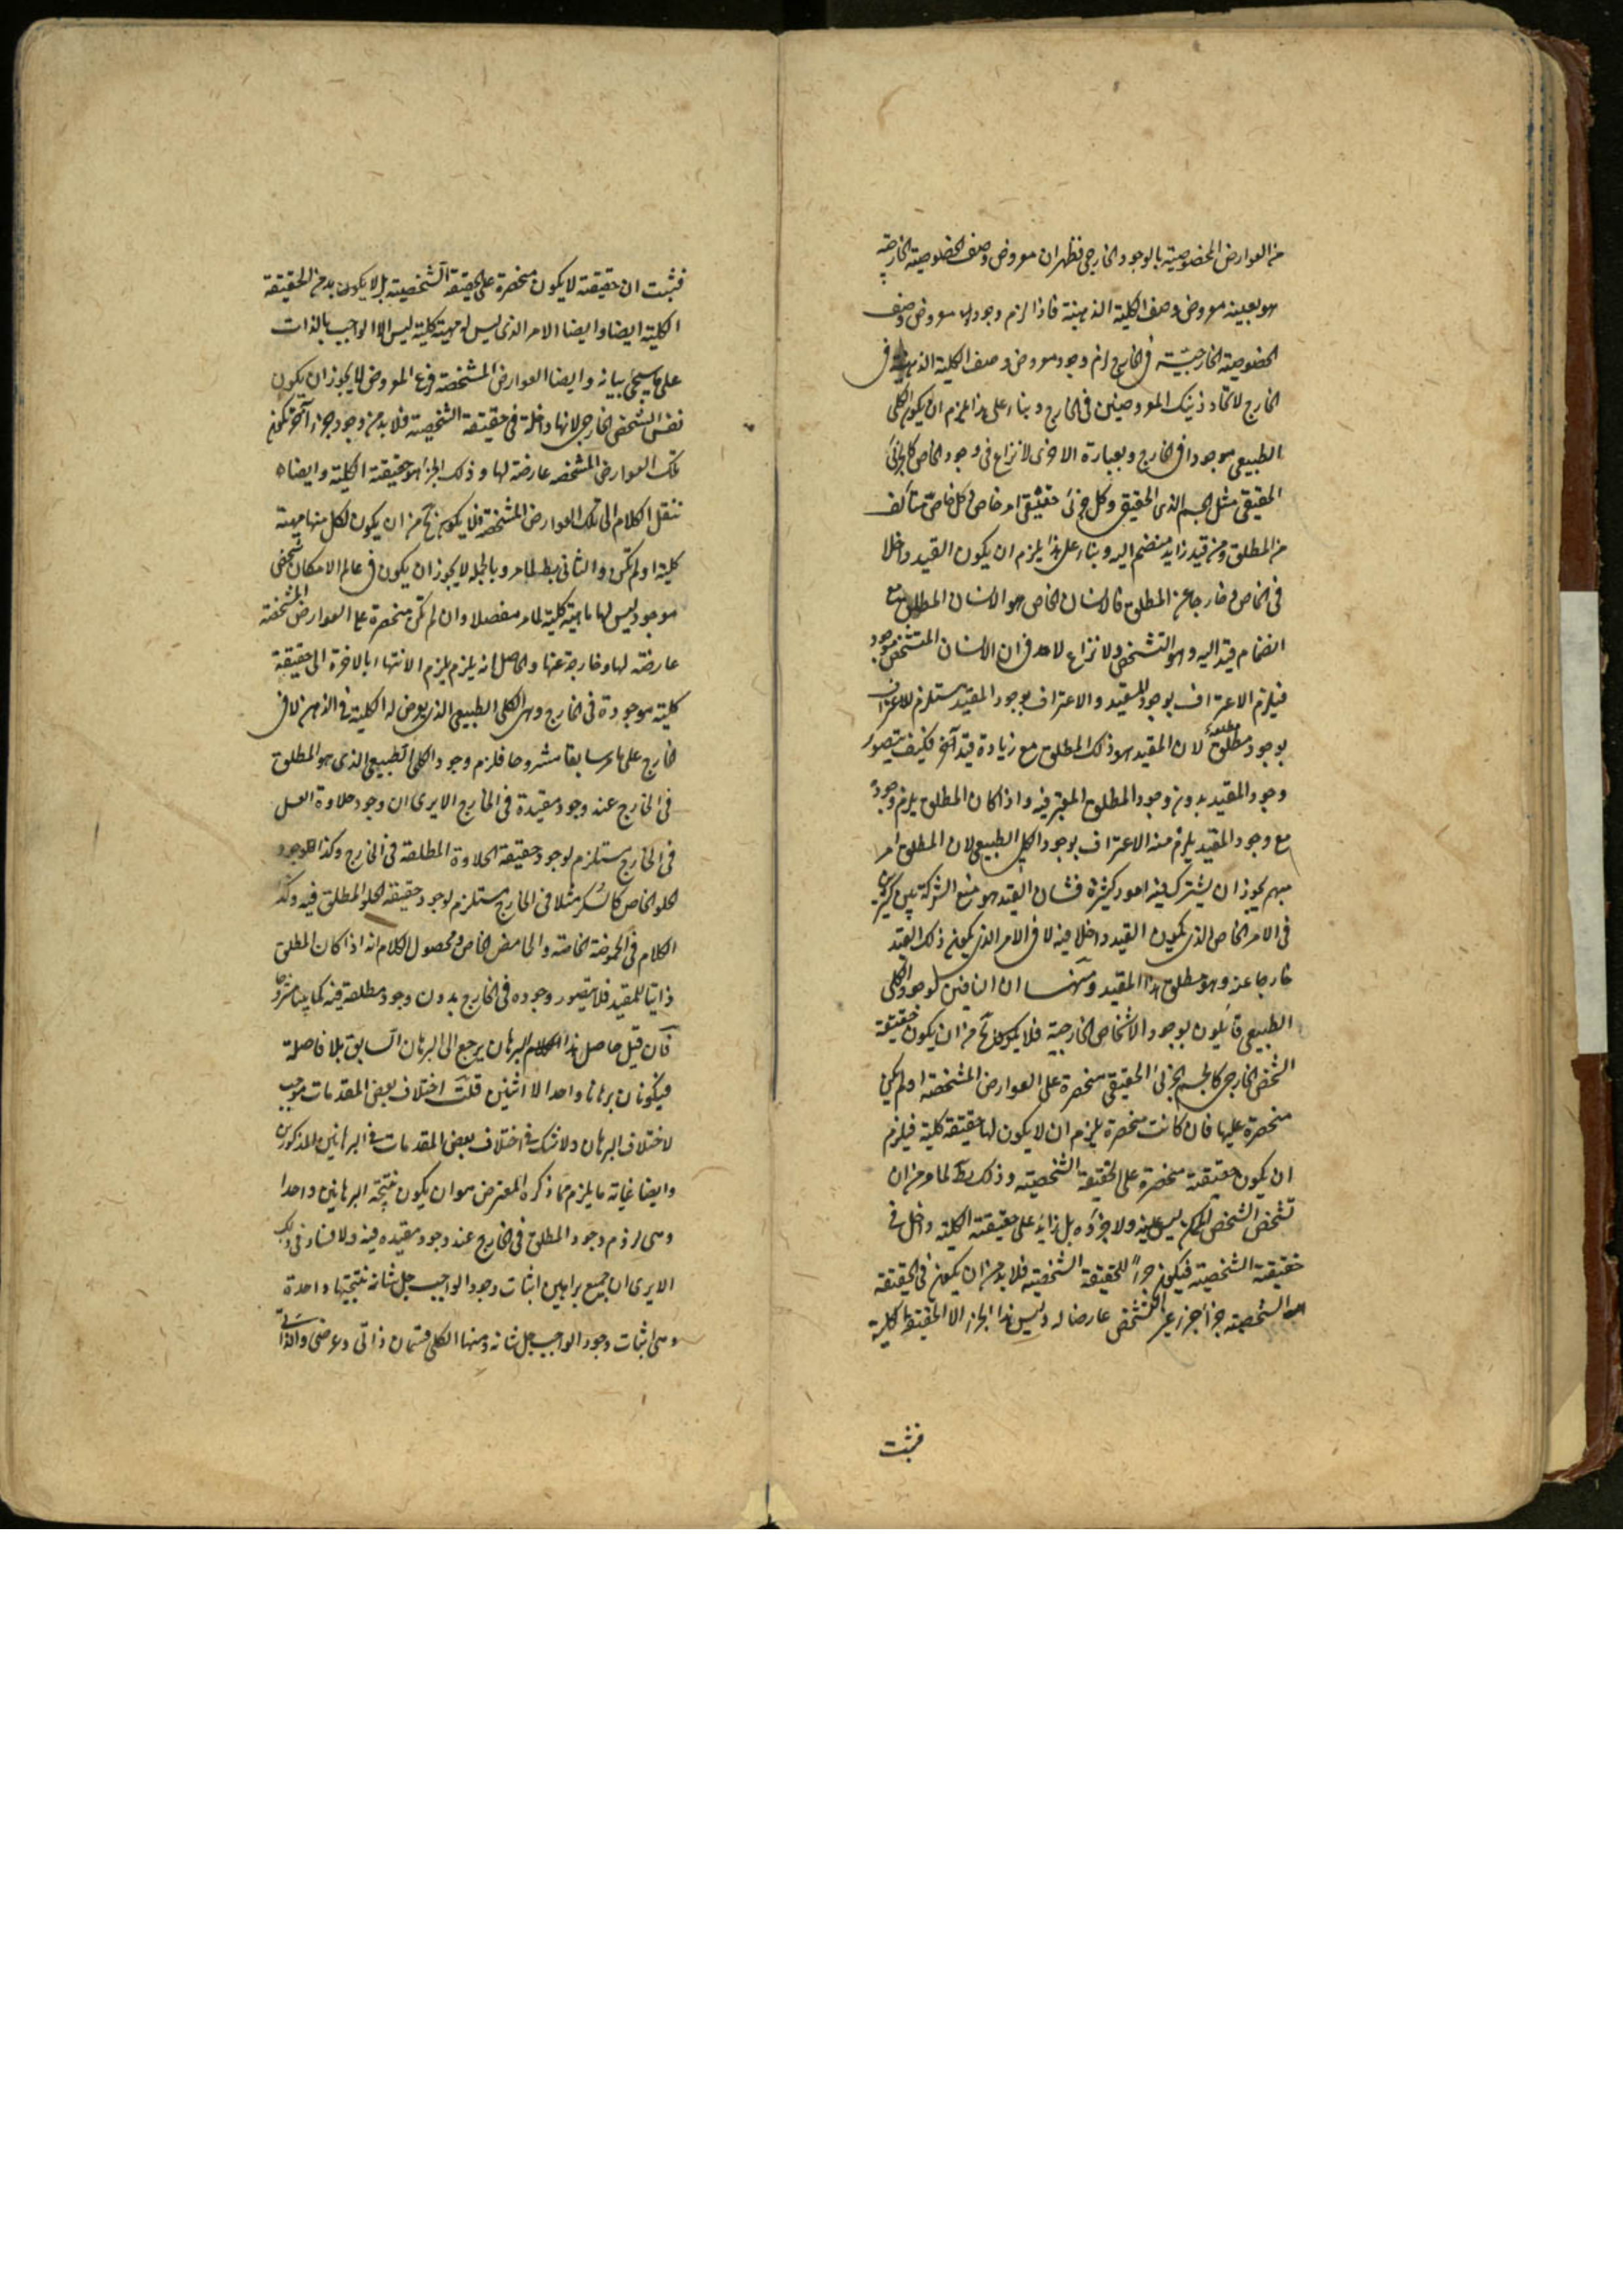 من العوارض المخصوصية بالوجود الخارجي فظهر ان معروض وصف الخصوصية الخارجية
هو بعينه معروض وصف الكلية الذهنية فاذا لزم وجود معروض وصف
الخصوصية الخارجية في الخارج لزم وجود معروض وصف الكلية الذهنية في
الخارج لاتحاد ذينك المعروضين في الخارج وبناء على هذا يلزم ان يكون الكلي
الطبيعي موجودا في الخارج وبعبارة الاخرى لا نزاع في وجود الخاص كالجزئي
الحقيقي مثل الجسم الذي الحقيقي وكل جزئي حقيقي امر خاص وكل خاص متألف
من المطلق ومن قيد زايد منضم اليه وبناء على هذا يلزم ان يكون القيد داخلا
في الخاص وخارجا عن المطلق فالانسان الخاص هو الانسان المطلق مع
انضمام قيد اليه وهو التشخص ولا نزاع لاحد في ان الانسان المتشخص موجود
فيلزم الاعتراف بوجود المقيد والاعتراف بوجود المقيد مستلزم للاعتراف
بوجود مطلقه لان المقيد هو ذلك المطلق مع زيادة قيد آخر فكيف يتصور
وجود المقيد بدون وجود المطلق المعتبر فيه واذا كان المطلق يلزم وجوده
مع وجود المقيد يلزم منه الاعتراف بوجود الكلي الطبيعي لان المطلق امر
مبهم يجوز ان يشترك فيه امور كثيرة فشان القيد هو منع الشركة بين كثيرين
في الامر الخاص الذي يكون القيد داخلا فيه لا في الامر الذي يكون ذلك القيد
خارجا عنه وهو مطلق هذا المقيد ومنها ان النافين لوجود الكلي
الطبيعي قايلون بوجود الاشخاص الخارجية فلا يخلو من ان يكون حقيقة
الشخص الخارجي كالجسم الجزئي الحقيقي منحصرة على العوارض المشخصة او لم يكن
منحصرة عليها فان كانت منحصرة يلزم ان لا يكون لها حقيقة كلية فيلزم
ان يكون حقيقته منحصرة على الحقيقة الشخصية وذلك بط لما مر من ان
تشخص الشخص الممكن ليس عينه ولا جزؤه بل زايد على حقيقته الكلية داخل في
حقيقة الشخصية فيكون جزءا للحقيقة الشخصية فلا بد من ان يكون في الحقيقة
الشخصية جزء آخر غير التشخص عارضا له وليس هذا الجزء الا الحقيقة الكلية
فثبت
فثبت ان حقيقته لا يكون منحصرة على الحقيقة الشخصية بل لا يكون بد من الحقيقة
الكلية ايضا وايضا الامر الذي ليس له مهية كلية ليس الا الواجب بالذات
على ما سيجئ بيانه وايضا العوارض المشخصة فرع المعروض فلا يجوز ان يكون
نفس الشخص الخارجي لانها داخلة في حقيقة الشخصية فلا بد من وجود جزء آخر يكون
تلك العوارض المشخصة عارضة لها وذلك الجزء هو حقيقته الكلية وايضا
ننقل الكلام الى تلك العوارض المشخصة فلا يكون من ان يكون لكل منها مهية
كلية او لم تكن والثاني بط لما مر وبالجملة لا يجوز ان يكون في عالم الامكان شخص
موجود ليس لها ماهية كلية لما مر مفصلا وان لم تكن منحصرة على العوارض المشخصة
عارضة لها وخارجة عنها والحاصل انه يلزم يلزم الانتهاء بالاخرة الى حقيقة
كلية موجودة في الخارج وهي الكلي الطبيعي الذي يعرض له الكلية في الذهن لا في
خارج على ما مر سابقا مشروحا فلزم وجود الكلي الطبيعي الذي هو المطلق
في الخارج عند وجود مقيدة في الخارج الا يرى ان وجود حلاوة العسل
في الخارج مستلزم لوجود حقيقة الحلاوة المطلقة في الخارج وكذا وجود
الحلو الخاص كالسكر مثلا في الخارج مستلزم لوجود حقيقة الحلو المطلق فيه وكذا
الكلام في الحموضة الخاصة والحامض الخاص ومحصول الكلام انه اذا كان المطلق
ذاتيا للمقيد فلا يتصور وجوده في الخارج بدون وجود مطلقه فيه كما بينا مشروحا
فان قيل حاصل هذا البرهان يرجع الى البرهان السابق بلا فاصلة
فيكونان برهانا واحدا لا اثنين قلت اختلاف بعض المقدمات موجب
لاختلاف البرهان ولا شك في اختلاف بعض المقدمات في البرهانين المذكورين
وايضا غاية ما يلزم مما ذكره المعترض هو ان يكون نتيجة البرهانين واحدا
وهي لزوم وجود المطلق في الخارج عند وجود مقيده فيه ولا فساد في ذلك
الا يرى ان جميع براهين اثبات وجود الواجب جل شانه نتيجتها واحدة
وهي اثبات وجود الواجب جل شانه ومنها الكلي قسمان ذاتي وعرضي والذاتي